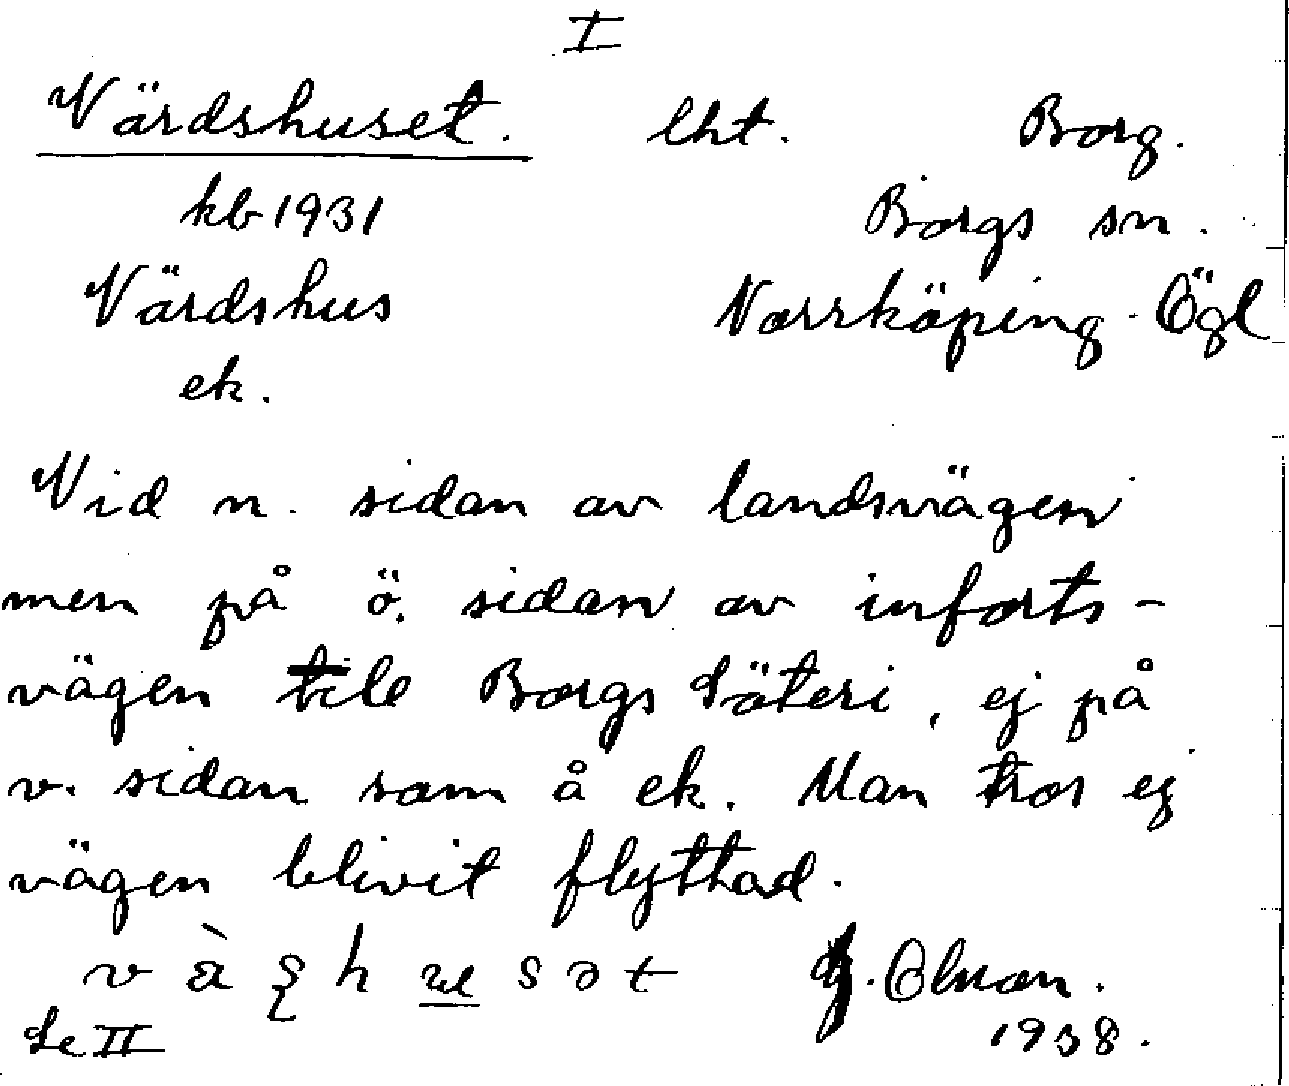 I
Värdshuset. lht. Borg.
kb 1931 Borgs sn.
Värdshus Norrköping. Ögl
ek.
Vid n. sidan av landsvägen
men på ö. sidan av inforts-
vägen till Borgs Säteri, ej på
v. sidan som å ek. Man tror ej
vägen blivit flyttad.
G. Olsson.
Se II 1938.